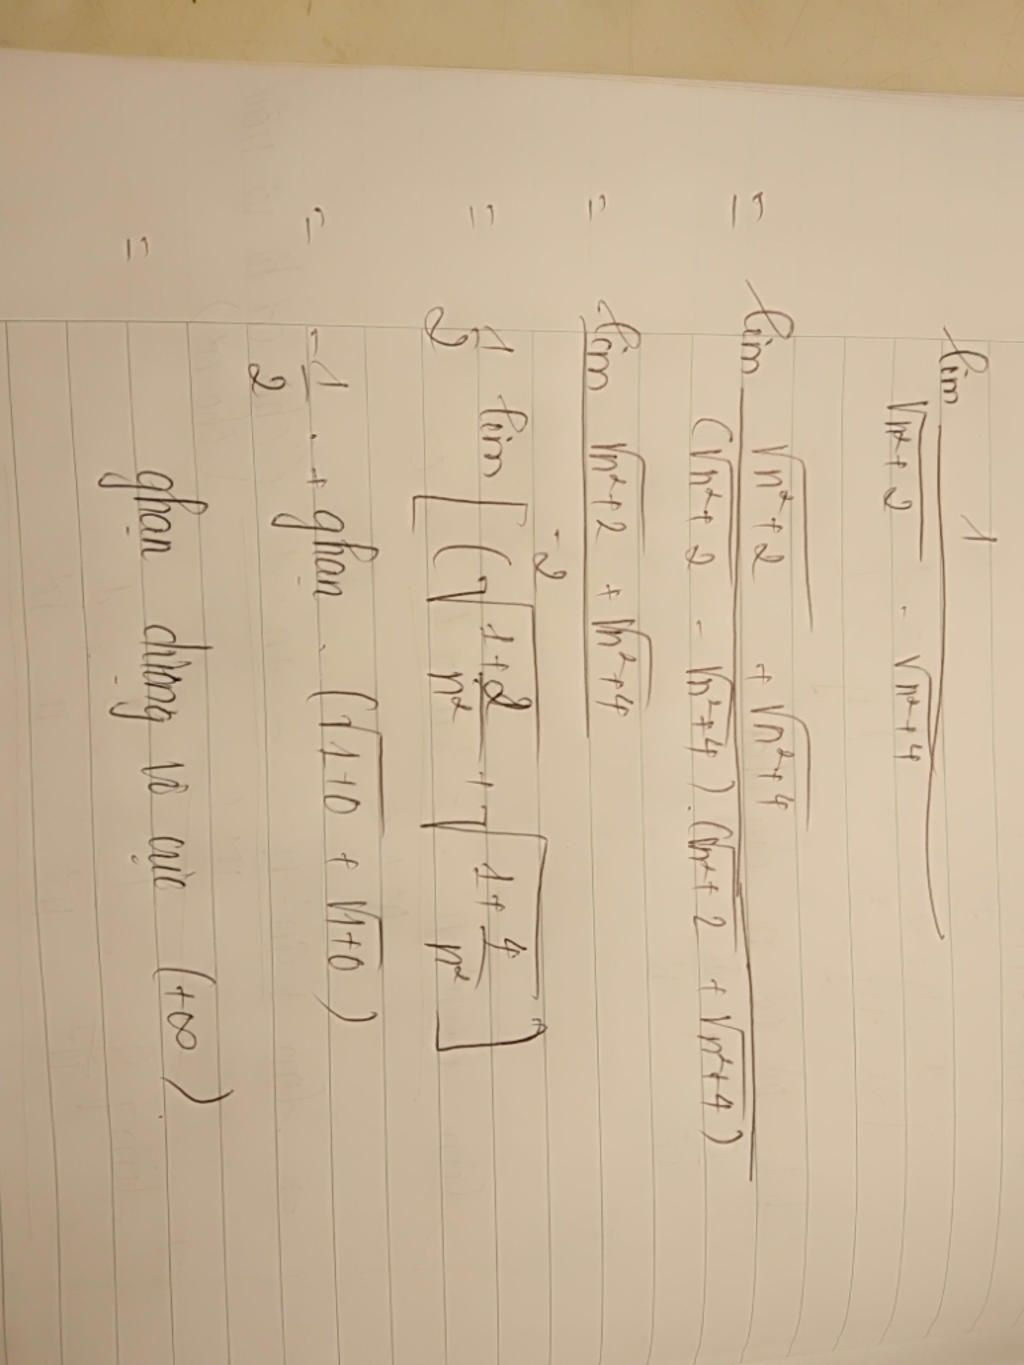 lim 1 / (√n²+2 - √n²+4)
= lim (√n²+2 + √n²+4) / ((√n²+2 - √n²+4).(√n²+2 + √n²+4))
= lim (√n²+2 + √n²+4) / -2
= 1/2 lim [(√(1+2/n²) + √(1+4/n²))]
= -1/2 . + ghạn . (√1+0 + √1+0)
= ghạn dương vô cực (+∞).